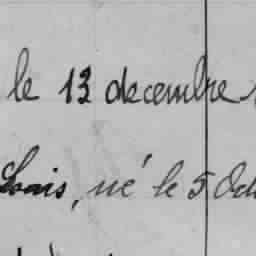 le 13 decembre
Louis, né le 5 Oct